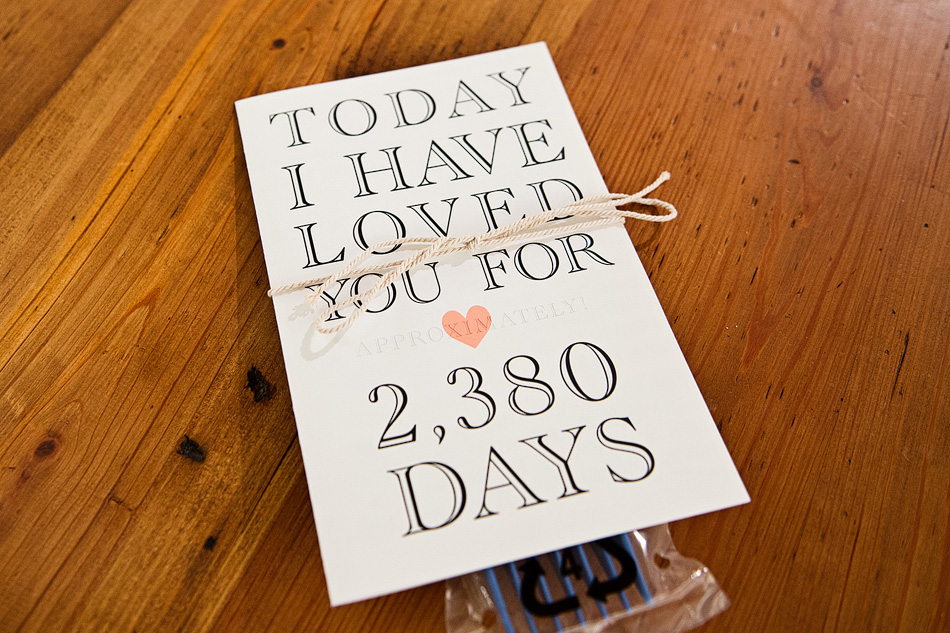 TODAY
I HAVE
LOVED
YOU FOR
APPROXIMATELY!
2,380
DAYS
4